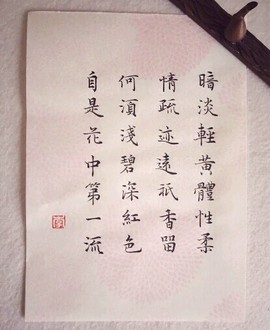 暗淡輕黃體性柔
情疏迹遠衹香畱
何湏淺碧深紅色
自是花中第一流